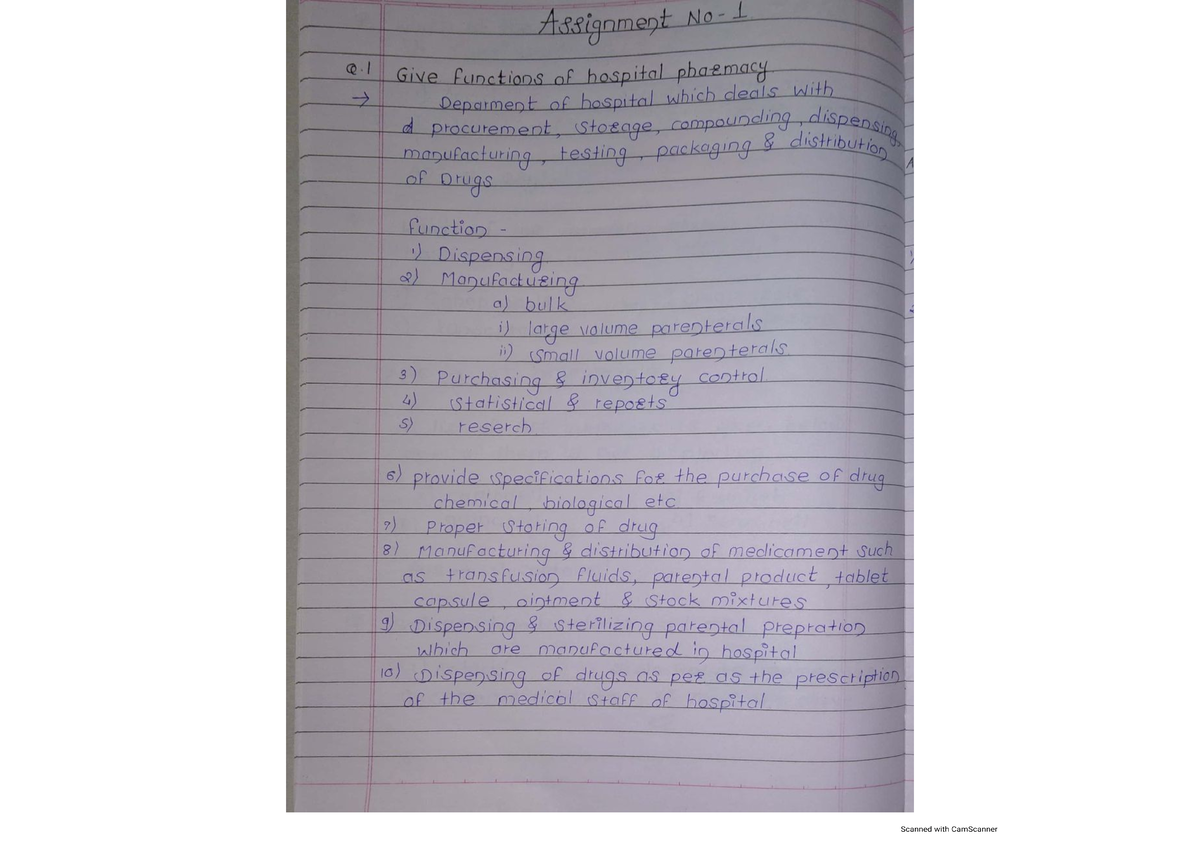 Assignment No - 1
Q.1 Give functions of hospital pharmacy
→ Deparment of hospital which deals with
d procurement, storage, compounding, dispensing,
manufacturing, testing, packaging & distribution
of Drugs
function -
1) Dispensing
2) Manufacturing
a) bulk
i) large volume parenterals
ii) small volume parenterals
3) Purchasing & inventory control
4) Statistical & reports
5) reserch
6) provide specifications for the purchase of drug
chemical, biological etc
7) Proper storing of drug
8) Manufacturing & distribution of medicament such
as transfusion fluids, parental product, tablet
capsule, ointment & stock mixtures
9) Dispensing & sterilizing parental prepration
which are manufactured in hospital
10) Dispensing of drugs as per as the prescription
of the medical staff of hospital
Scanned with CamScanner